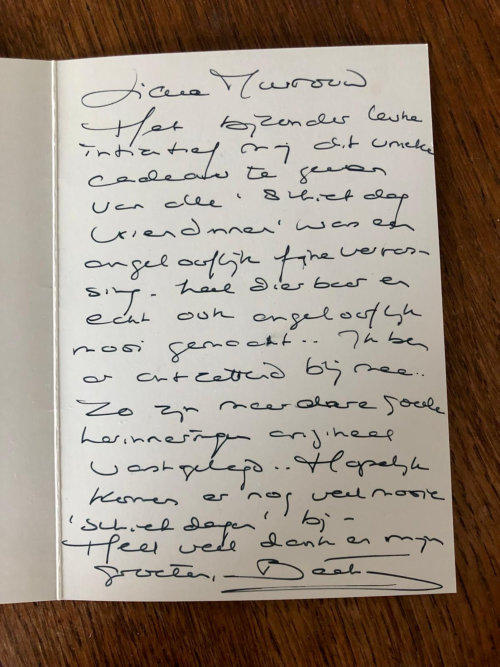 Mevrouw
Het bijzonder leuke
initiatief mij dit unieke
cadeau te geven
van alle 'Schietdag
vriendinnen' was een
ongelooflijk fijne verras-
sing - heel dierbaar en
echt ook ongelooflijk
mooi gemaakt.. Ik ben
er ontzettend blij mee..
Zo zijn meerdere goede
herinneringen origineel
vastgelegd.. Hopelijk
komen er nog veel mooie
'schietdagen' bij -
Heel veel dank en mijn
groeten,